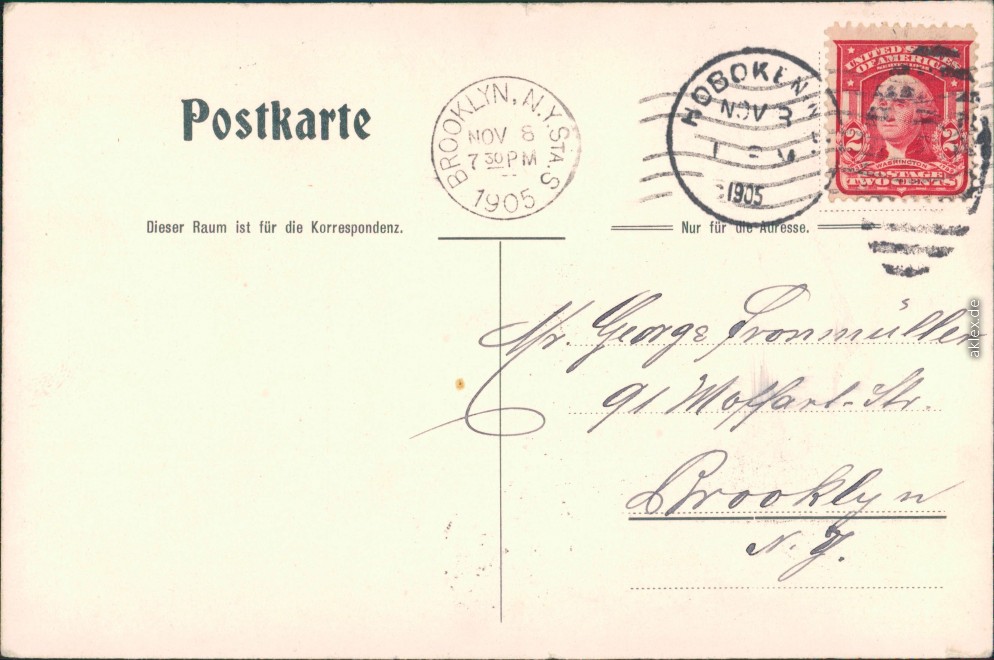 Postkarte
BROOKLYN, N.Y. STA. S
NOV 8
7 30 PM
1905
HOBOKEN, N.J.
NOV 8
1905
UNITED STATES
OF AMERICA
2 2
WASHINGTON
POSTAGE
TWO CENTS
Dieser Raum ist für die Korrespondenz.
Nur für die Adresse.
Mr. George Fronmüller
91 Moffart-Str.
Brooklyn
N. Y.
aklex.de